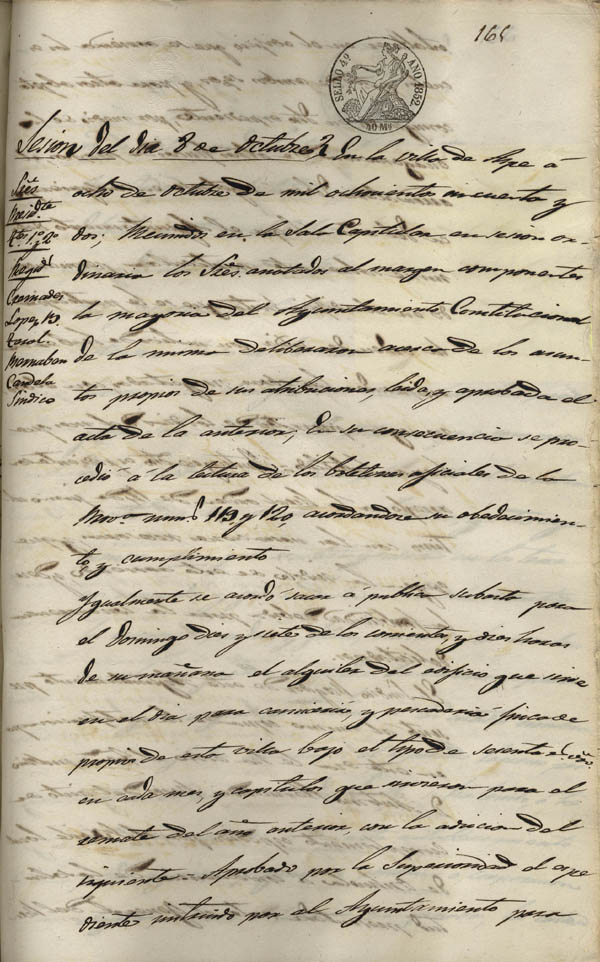 165
SELLO 4º AÑO 1852.
40 Ms
Sesion del dia 8 de Octubre
En la villa de Aspe á
ocho de octubre de mil ochocientos cincuenta y
dos; Reunidos en la Sala Capitular en sesion or-
dinaria los Sres. anotados al margen componentes
la mayoria del Ayuntamiento Constitucional
de la misma deliberaron acerca de los asun-
tos propios de sus atribuciones, leida, y aprobada el
acta de la anterior, En su consecuencia se pro-
cedió á la lectura de los boletines oficiales de la
Prova. nums. 119 y 120 acordandose su obedecimien-
to, y cumplimiento
Ygualmente se acordó sacar á publica subasta para
el Domingo dies y siete de los corrientes, y dies horas
de su mañana el alquiler del edificio que sirve
en el dia para carniceria, y pescaderia finca de
propios de esta villa bajo el tipo de sesenta rs. von.
en cada mes, y capitulos que sirvieron para el
remate del año anterior con la adicion del
siguiente = Aprobado por la Superioridad el espe
diente instruido por el Ayuntamiento para
Sres.
Presidte
Ttes. 1º y 2º
Regids.
Cremades
Lopez
Terol.
Mirambell
Candela
Sindico